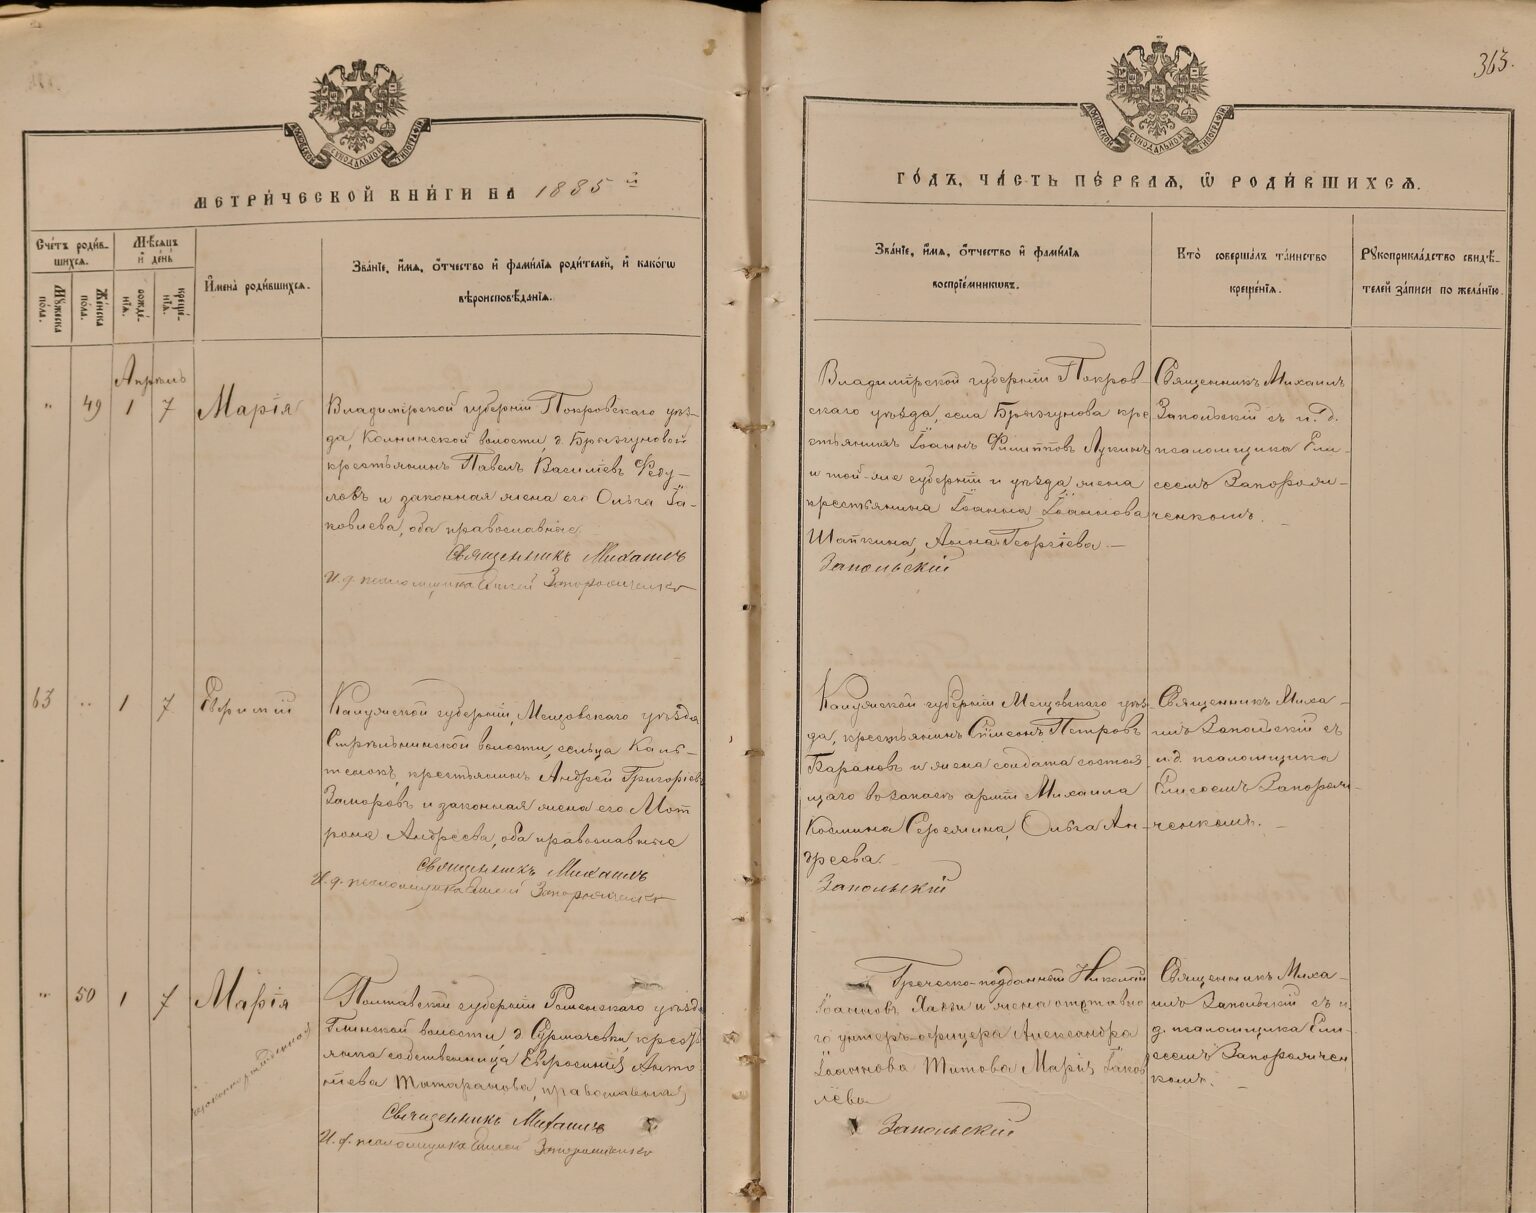 363.
МОСКОВСКОЙ СѴНОДАЛЬНОЙ ТИПОГРАФІИ
МОСКОВСКОЙ СѴНОДАЛЬНОЙ ТИПОГРАФІИ
МЕТРИ́ЧЕСКОЙ КНИ́ГИ НА 1885 й
ГО́ДЪ, ЧА́СТЬ ПЕ́РВАЯ, Ѡ҆ РОДИ́ВШИХСЯ.
Сче́тъ роди́в-
шихся.
Му́жеска по́ла.
Же́нска по́ла.
Мѣ́сяцъ
и҆ де́нь
рожде́-
нїя.
креще́-
нїя.
И҆мена̀ роди́вшихся.
Зва́нїе, и҆́мя, ѻ҆́тчество и҆ фами́лїя роди́телей, и҆ како́гѡ
вѣроисповѣ́данїя.
Зва́нїе, и҆́мя, ѻ҆́тчество и҆ фами́лїя
воспрїе́мникѡвъ.
Кто̀ соверша́лъ та́инство
креще́нїя.
Рꙋкоприкла́дство свидѣ́-
телей за́писи по жела́нїю.
Апрѣль
" 49 1 7 Марія
Владимірской губерніи Покровскаго уѣз-
да, Коннинской волости, д. Брызгуновой
крестьянинъ Павелъ Василіевъ Феду-
ловъ и законная жена его Ольга Іа-
ковлева, оба православные
Священникъ Михаилъ
И. д. псаломщика Елисей Запорожченко
Владимірской губерніи Покров-
скаго уѣзда, села Брызгунова кре
стьянинъ Іоаннъ Филипповъ Лукинъ
и той-же губерніи и уѣзда жена
крестьянина Іоанна Іоаннова
Шапкина, Анна Георгіева. —
Запольскій
Священникъ Михаилъ
Запольскій съ и. д.
псаломщика Ели-
сеемъ Запорож-
ченкомъ.
63 " 1 7 Евѳимій
Калужской губерніи, Мещовскаго уѣзда
волости, сельца
крестьянинъ Андрей Григорьевъ
и законная жена его Мот
рона Андреева, оба православные
Священникъ Михаилъ
И. д. псаломщика Елисей Запорожченко
Калужской губерніи Мещовскаго уѣз-
да, крестьянинъ Сѵмеонъ Петровъ
Барановъ и жена солдата состоя
щаго въ запасѣ арміи Михаила
Косьмина Ольга Ан-
дреева. —
Запольскій
Священникъ Миха-
илъ Запольскій съ
и. д. псаломщика
Елисеемъ Запорож-
ченкомъ. —
" 50 1 7 Марія
Полтавской губерніи Роменскаго уѣзда
Глинской волости, д. Сурмачевки, крестъ
янка собственница Евфросинія Анто-
ніева православная
Священникъ Михаилъ
И. д. псаломщика Елисей Запорожченко
Греческо-подданный Николай
Іоанновъ и жена отставно
го унтеръ-офицера Александра
Іоаннова Титова Марія Іаков
лева
Запольскій
Священникъ Миха-
илъ Запольскій съ и.
д. псаломщика Ели-
сеемъ Запорожчен
комъ. —